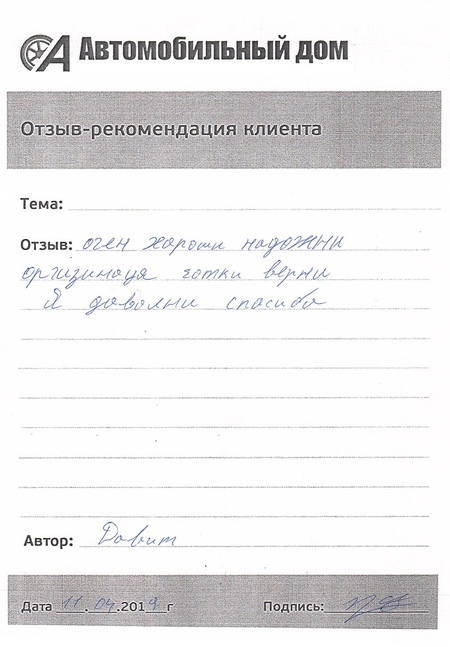 Автомобильный дом
Отзыв-рекомендация клиента
Тема:
Отзыв: оген хароши надожни
оргизинаця чотки верни
Я доволни спасибо
Автор: Довит
Дата 11.04.2019 г Подпись: